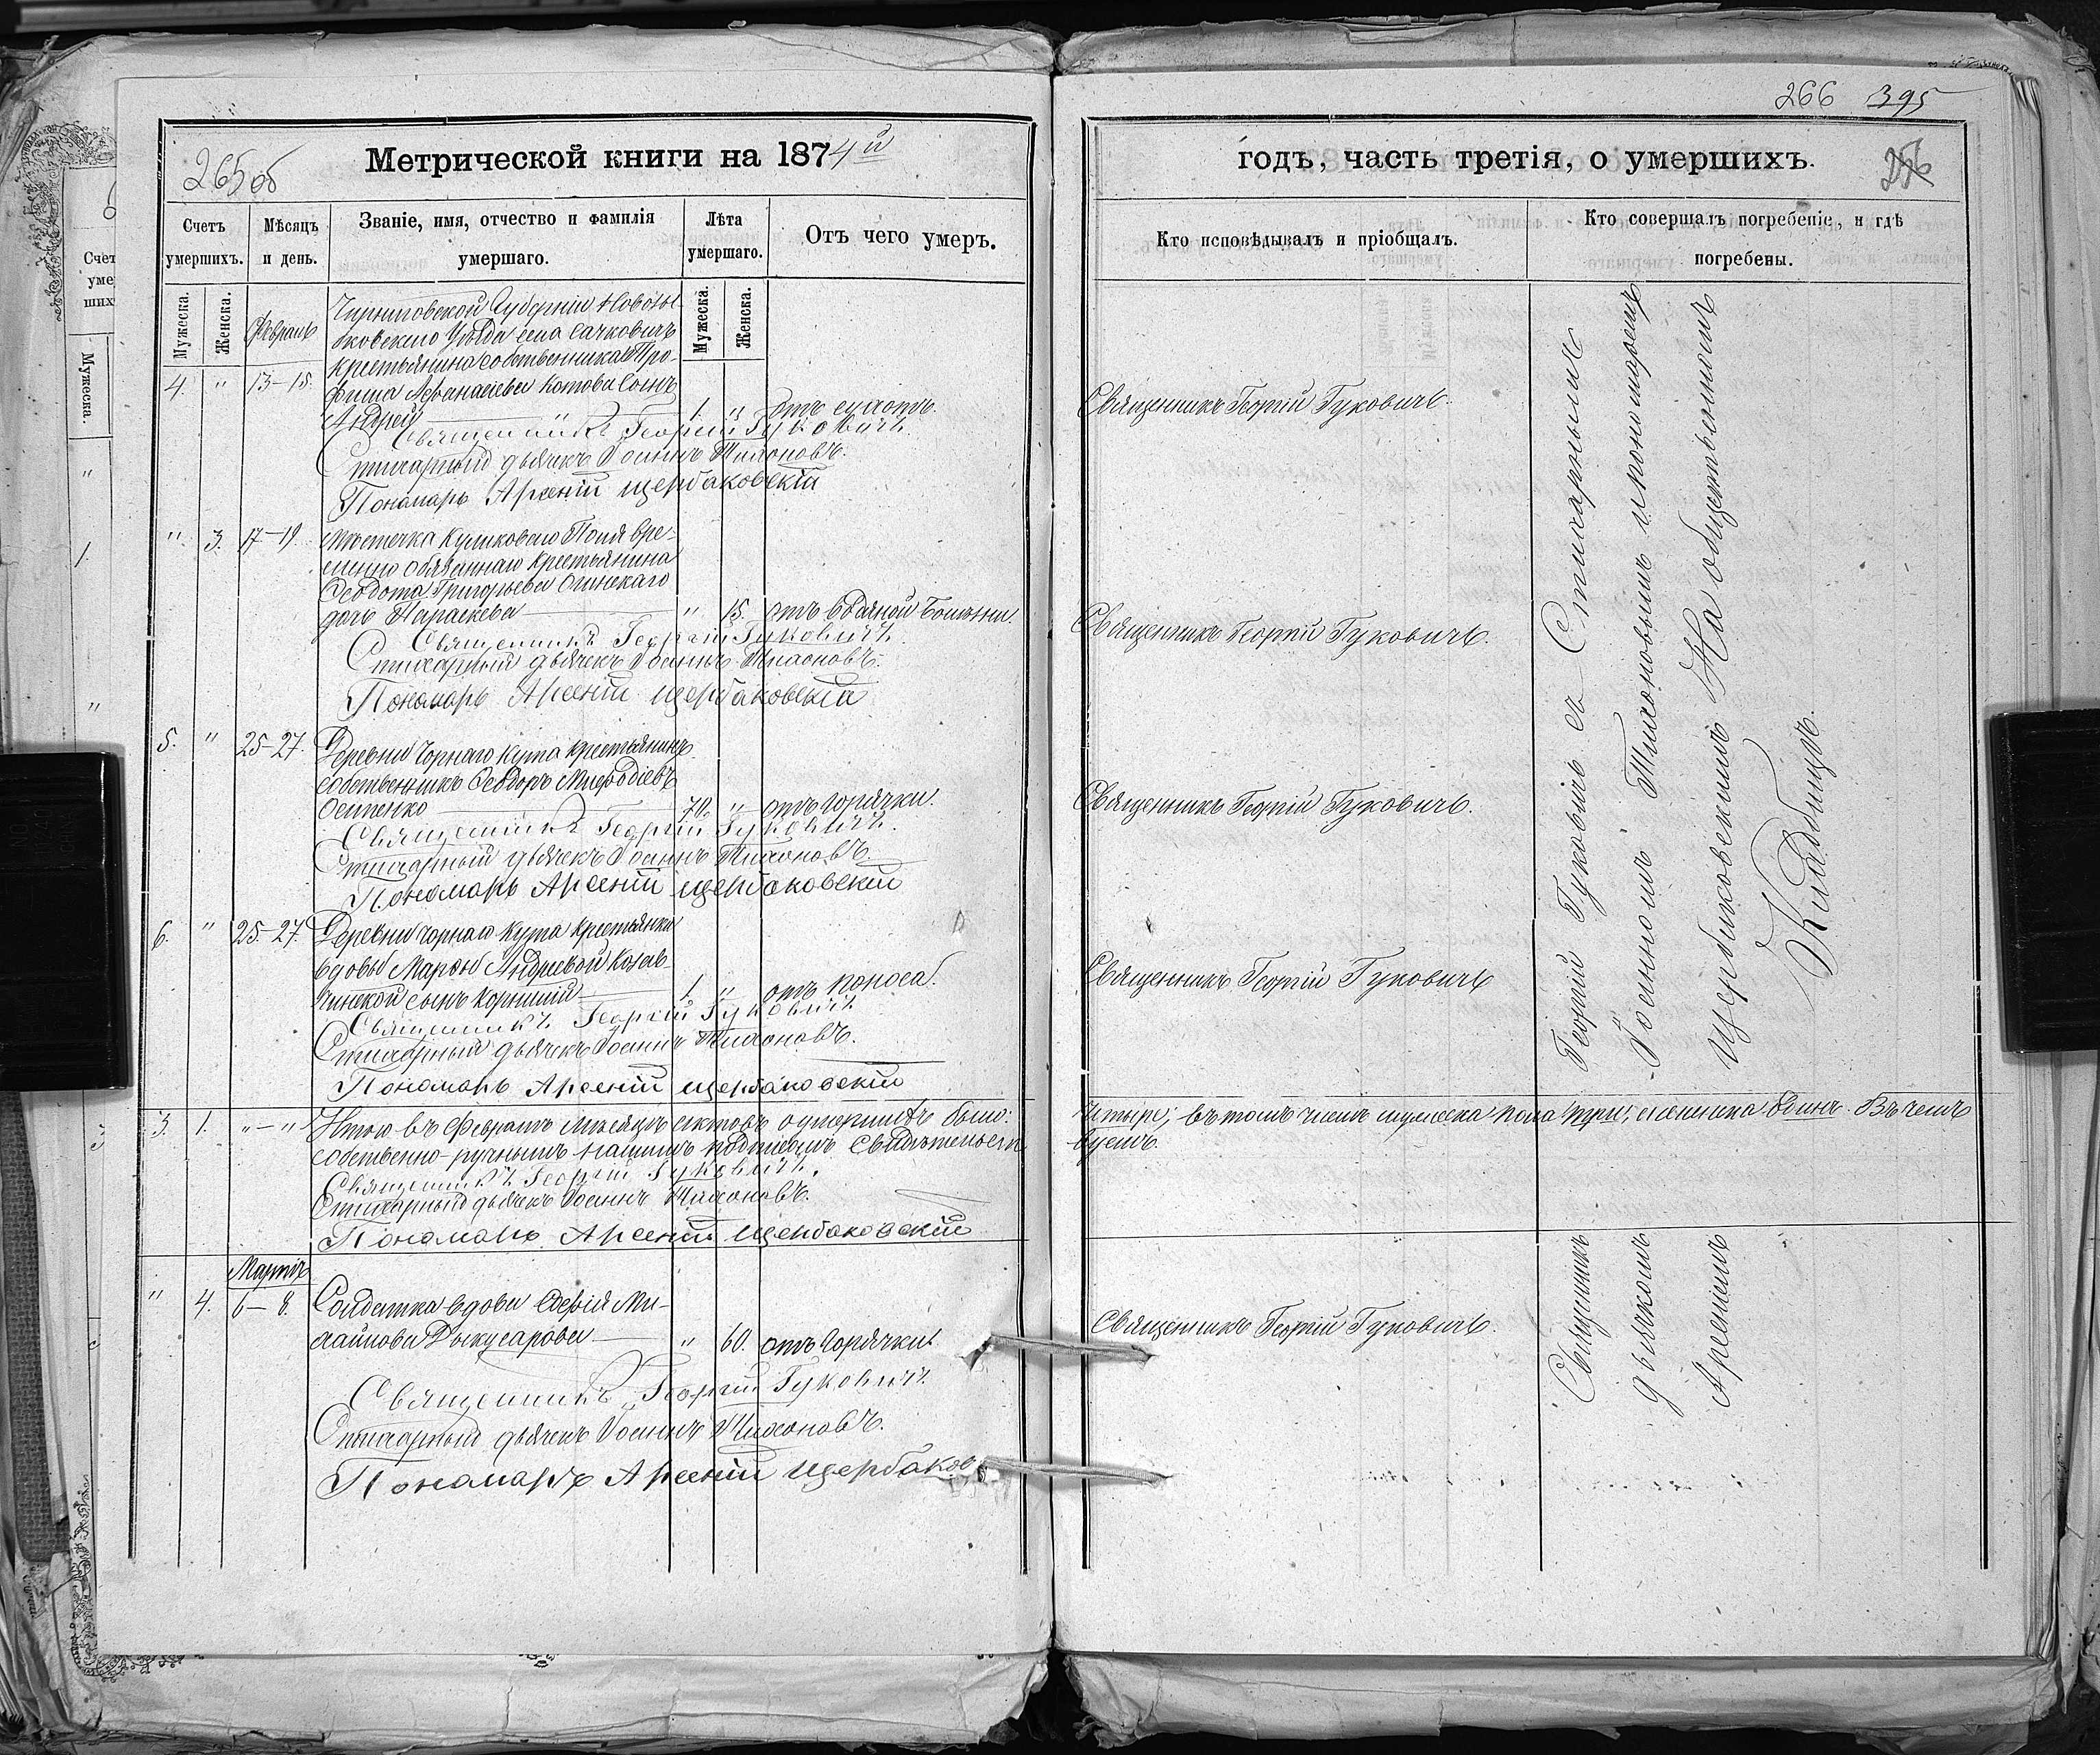 265 об
Метрической книги на 1874 й
Счетъ умершихъ.
Мѣсяцъ и день.
Званіе, имя, отчество и фамилія умершаго.
Лѣта умершаго.
Отъ чего умеръ.
Мужеска.
Женска.
Мужеска.
Женска.
Февраль
4. " 13-15.
Черниговской Губерніи Новозы-
бковскаго Уѣзда села
крестьянина собственника Про-
фима Афанасіева Котова Сынъ
Андрей 1. "
Священникъ Георгій Гуковичъ.
Стихарный дьячекъ Іоаннъ Тихоновъ.
Пономарь Арсеній Щербаковскій
" 3. 17-19.
Мѣстечка Куликоваго Поля вре-
менно обязаннаго крестьянина
Ѳеодота Григорьева Огинскаго
дочь Параскева " 15. отъ водяной болѣзни.
Священникъ Георгій Гуковичъ.
Стихарный дьячекъ Іоаннъ Тихоновъ.
Пономарь Арсеній Щербаковскій
5. " 25-27.
Деревни Чорнаго Кута крестьянинъ
собственникъ Ѳеодоръ Мефодіевъ
Осипенко 70. " отъ горячки.
Священникъ Георгій Гуковичъ.
Стихарный дьячекъ Іоаннъ Тихоновъ.
Пономарь Арсеній Щербаковскій
6. " 25-27.
Деревни Чорнаго Кута крестьянки
вдовы Андреевой
сынъ Корнилій 1. " отъ поноса.
Священникъ Георгій Гуковичъ.
Стихарный дьячекъ Іоаннъ Тихоновъ.
Пономарь Арсеній Щербаковскій
3. 1. "-"
Итого въ Февралѣ мѣсяцѣ актовъ о умершихъ было:
собственно-ручнымъ нашимъ подписомъ свидѣтельст
Священникъ Георгій Гуковичъ.
Стихарный дьячекъ Іоаннъ Тихоновъ.
Пономарь Арсеній Щербаковскій
Мартъ
" 4. 6-8.
Солдатка вдова Ми-
хайлова " 60. отъ горячки.
Священникъ Георгій Гуковичъ.
Стихарный дьячекъ Іоаннъ Тихоновъ.
Пономарь Арсеній Щербаков
266 395
годъ, часть третія, о умершихъ.
Кто исповѣдывалъ и пріобщалъ.
Кто совершалъ погребеніе, и гдѣ погребены.
Священникъ Георгій Гуковичъ.
Священникъ Георгій Гуковичъ.
Священникъ Георгій Гуковичъ.
Священникъ Георгій Гуковичъ
четыре; въ томъ числѣ мужеска пола три, а женска одинъ. Въ чемъ
вуемъ.
Священникъ Георгій Гуковичъ.
Священникъ Георгій Гуковичъ съ Стихарнымъ
дьячкомъ Іоанномъ Тихоновымъ и пономаремъ
Арсеніемъ Щербаковскимъ На общественномъ
Кладбищѣ.
Счет
уме
ших
Мужеска.
"
1.
"